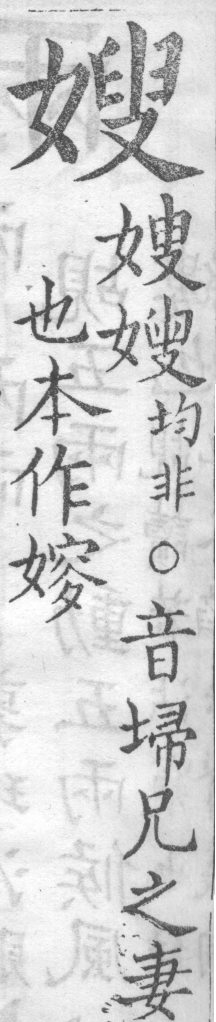 嫂
嫂㛐均非○音埽兄之妻
也本作㛮